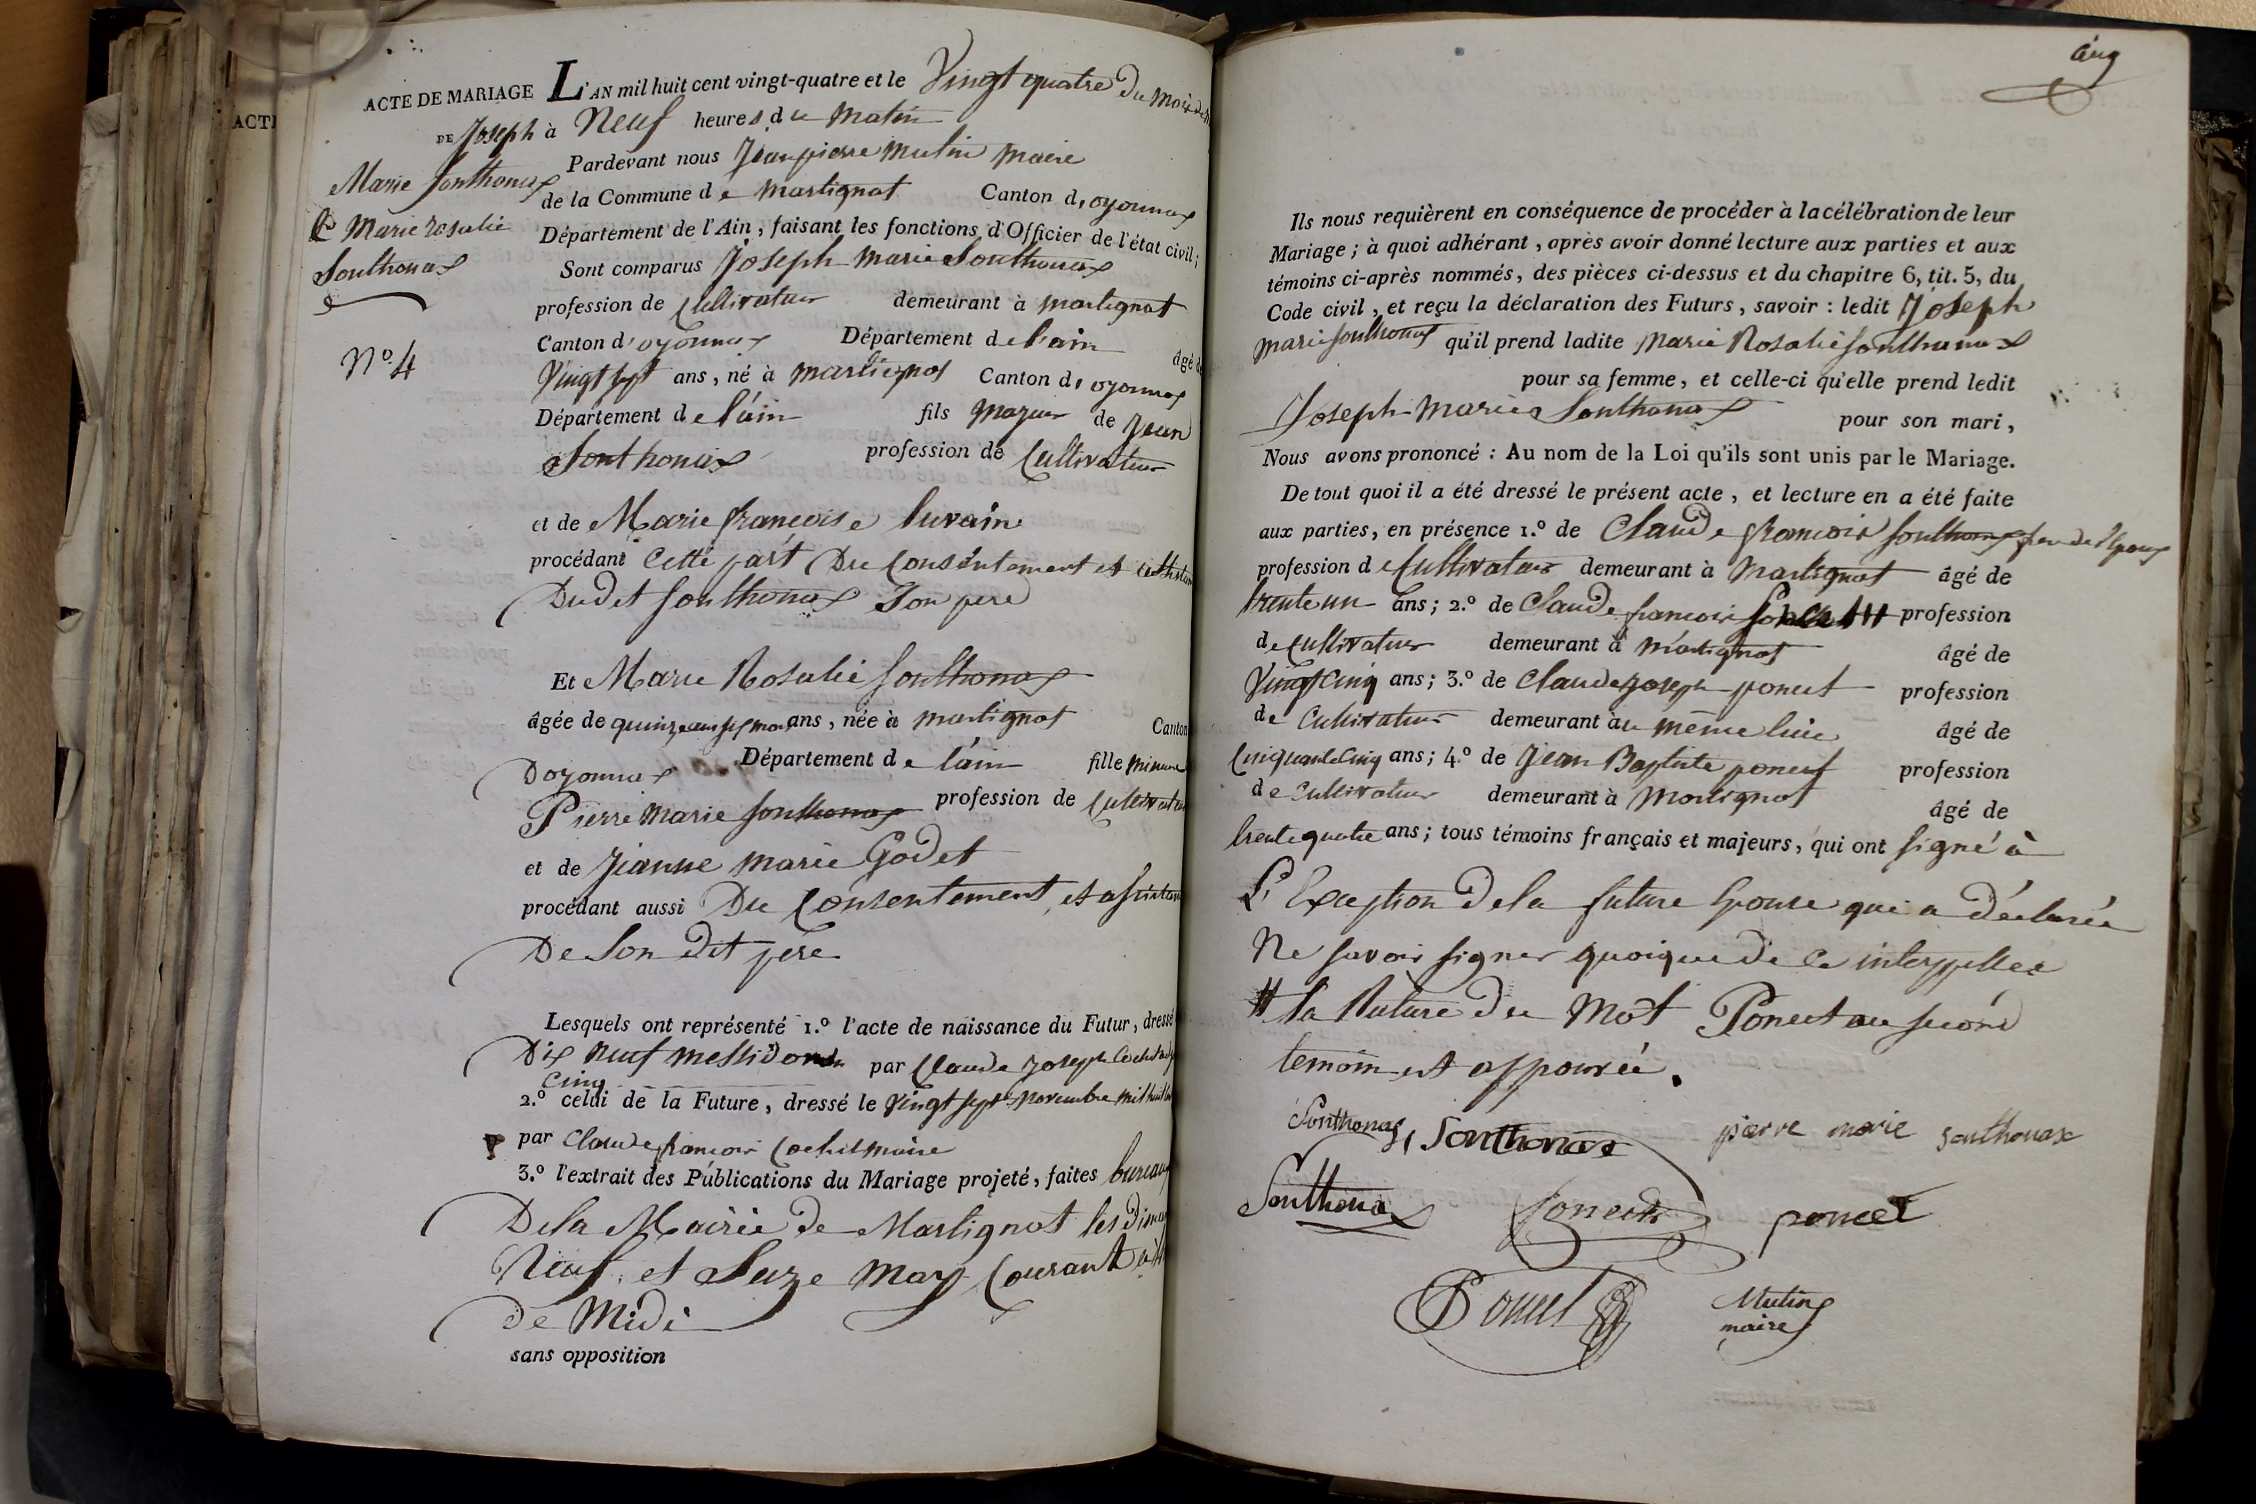 ACTE DE MARIAGE
DE Joseph
Marie Sonthonax
& Marie rosalie
Sonthonax
N.o 4
L'AN mil huit cent vingt-quatre et le Vingt quatre du mois de
à Neuf heures du matin
Pardevant nous Jean pierre mutin maire
de la Commune de martignat Canton d'oyonnax
Département de l'Ain, faisant les fonctions d'Officier de l'état civil;
Sont comparus Joseph marie Sonthonax
profession de Cultivateur demeurant à martignat
Canton d'oyonnax Département de l'ain âgé de
Vingt sept ans, né à martignat Canton d'oyonnax
Département de l'ain fils majeur de Jean
Sonthonax profession de Cultivateur
et de Marie françoise
procédant Cette part Du Consentement et
Dudit Sonthonax Son pere
Et Marie Rosalie Sonthonax
âgée de quinze ans six mois ans, née à martignat Canton
D'oyonnax Département de l'ain fille mineure
Pierre Marie Sonthonax profession de Cultivateur
et de Jeanne marie Godet
procédant aussi Du Consentement et assistance
De Son dit père
Lesquels ont représenté 1.o l'acte de naissance du Futur, dressé
Dix neuf messidor an par Claude Joseph
Cinq
2.o celui de la Future, dressé le Vingt sept Novembre mil huit
par Claude françois Cochet maire
3.o l'extrait des Publications du Mariage projeté, faites bureau
De la Mairie de Martignat les Diman
Neuf et Seize May Courant à
de Midi
sans opposition
cinq
Ils nous requièrent en conséquence de procéder à la célébration de leur
Mariage; à quoi adhérant, après avoir donné lecture aux parties et aux
témoins ci-après nommés, des pièces ci-dessus et du chapitre 6, tit. 5, du
Code civil, et reçu la déclaration des Futurs, savoir : ledit Joseph
marie Sonthonax qu'il prend ladite Marie Rosalie Sonthonax
pour sa femme, et celle-ci qu'elle prend ledit
Joseph Marie Sonthonax pour son mari,
Nous avons prononcé : Au nom de la Loi qu'ils sont unis par le Mariage.
De tout quoi il a été dressé le présent acte, et lecture en a été faite
aux parties, en présence 1.o de Claude françois Sonthonax de l'Epoux
profession de Cultivateur demeurant à Martignat âgé de
trente un ans; 2.o de Claude françois Poncet # profession
de Cultivateur demeurant à martignat âgé de
Vingt Cinq ans; 3.o de Claude Joseph poncet profession
de Cultivateur demeurant au même lieu âgé de
Cinquante Cinq ans; 4.o de Jean Baptiste poncet profession
de Cultivateur demeurant à Martignat âgé de
trente quatre ans; tous témoins français et majeurs, qui ont signé à
L'Exception De la future Epouse qui a déclarée
Ne savoir signer quoique de ce interpellée
# la Rature du Mot Poncet au second
temoin est approuvée.
Sonthonax Sonthonax pierre marie sonthonax
Sonthonax Poncet poncet
Poncet Mutin
maire